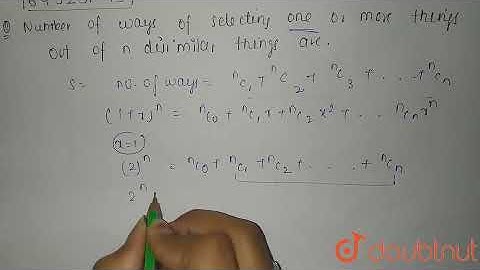 Q Number of ways of selecting one or more things
out of n dissimilar things are.
S= no. of ways = ⁿC₁ + ⁿC₂ + ⁿC₃ + . . . + ⁿCₙ
(1+x)ⁿ = ⁿC₀ + ⁿC₁x + ⁿC₂x² + . . . ⁿCₙxⁿ
x=1
(2)ⁿ = ⁿC₀ + ⁿC₁ + ⁿC₂ + . . . . + ⁿCₙ
2ⁿ
doubtnut